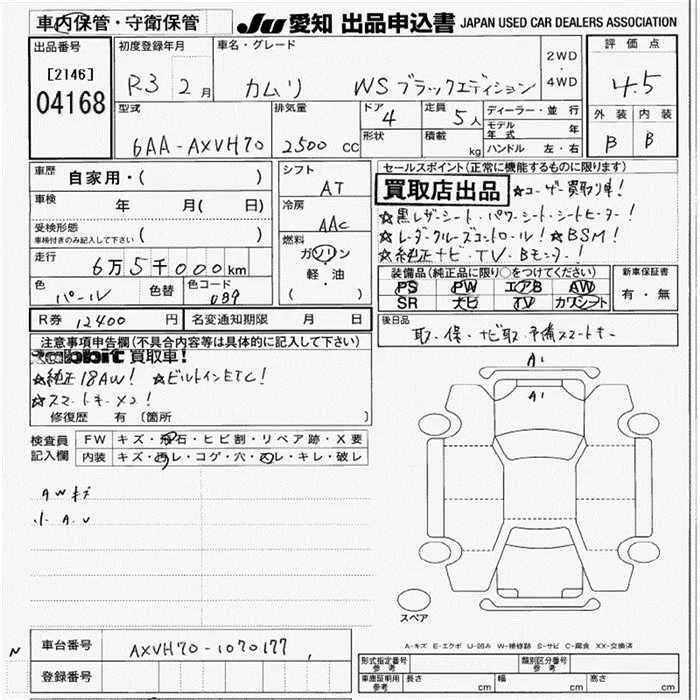 車内保管・守衛保管
JU 愛知 出品申込書 JAPAN USED CAR DEALERS ASSOCIATION
出品番号
[2146]
04168
初度登録年月
R3 2月
車名・グレード
カムリ WS ブラックエディション
2WD
・
4WD
評価点
4.5
外装 内装
B B
型式
6AA-AXVH70
排気量
2500 cc
ドア
4
形状
定員
5人
積載
kg
ディーラー・並行
モデル年式 年
ハンドル 左・右
車歴
自家用・( )
車検
年 月( 日)
受検形態
車検付きのみ記入して下さい ( )
走行
6万5千000km
色
パール
色替
色コード
089
シフト
AT
冷房
AAC
燃料
ガソリン
軽・油
( )
R券 12400 円
名変通知期限 月 日
セールスポイント(正常に機能するものに限ります)
買取店出品 ☆ユーザー買取り車!
☆黒レザーシート・パワーシート・シートヒーター!
☆レーダークルーズコントロール! ☆BSM!
☆純正ナビ・TV・Bモニター!
装備品(純正品に限り○をつけてください)
PS PW エアB AW
SR ナビ TV カワシート
新車保証書
有・無
後日品
取・保・ナビ取・予備スマートキー
注意事項申告欄(不具合内容等は具体的に記入して下さい)
Rabbit 買取車!
☆純正18AW! ☆ビルトインETC!
☆スマートキー×2!
修復歴 有 〔箇所 〕
検査員
記入欄
FW キズ・飛石・ヒビ割・リペア跡・X要
内装 キズ・汚レ・コゲ・穴・スレ・キレ・破レ
AWキズ
小A.U
A1
A1
スペア
A-キズ E-エクボ U-凹み W-補修跡 S-サビ C-腐食 XX-交換済
車台番号 AXVH70-1070177
登録番号
型式指定番号
参考
類別区分番号
参考
車庫証明用
参考
長さ cm 幅 cm 高さ cm